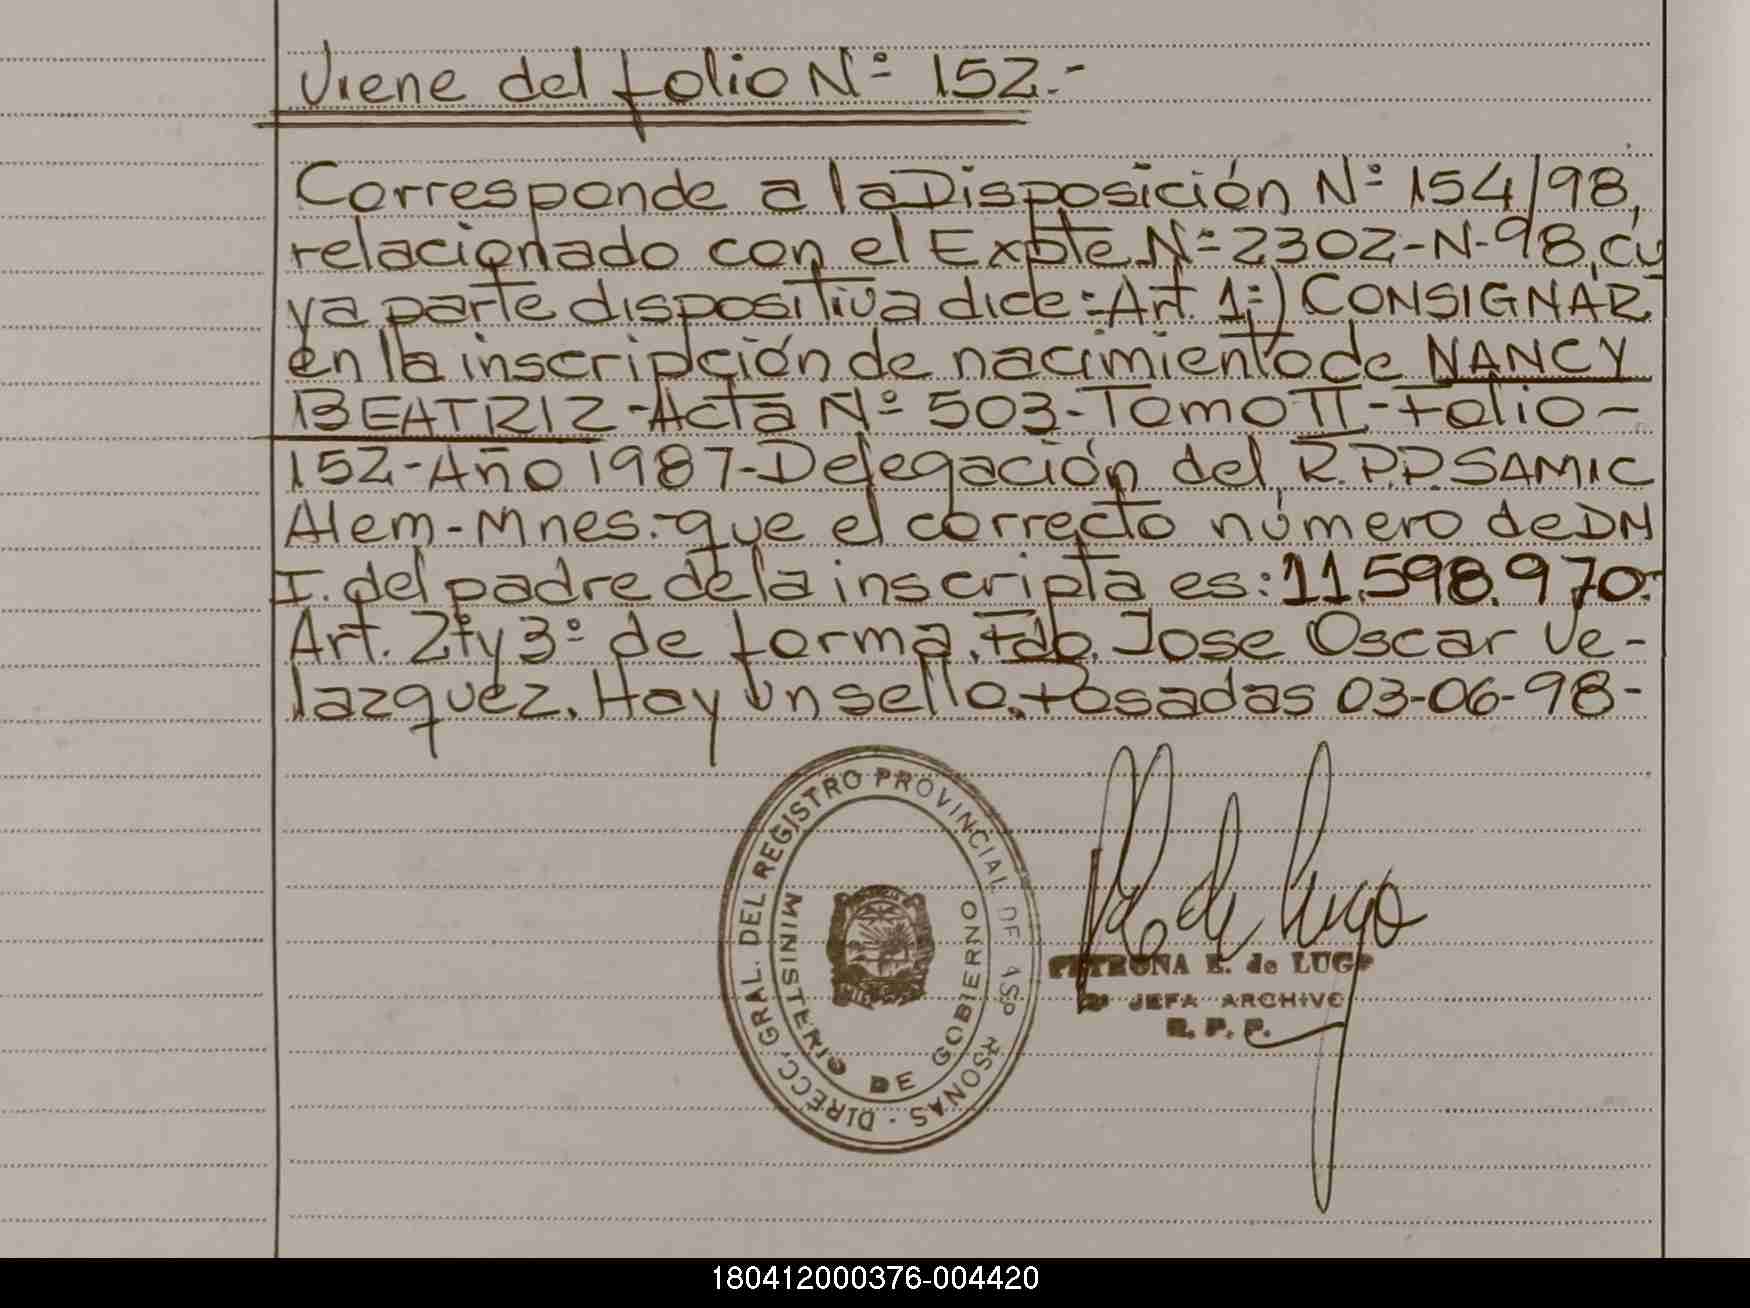 Viene del folio Nº 152.-
Corresponde a la Disposición Nº 154/98,
relacionado con el Expte. Nº 2302-N-98, cu
ya parte dispositiva dice: Art. 1º) CONSIGNAR
en la inscripción de nacimiento de NANCY
BEATRIZ - Acta Nº 503 - Tomo II - Folio -
152 - Año 1987 - Delegación del R.P.P. SAMIC
Alem - Mnes. - que el correcto número de DN
I. del padre de la inscripta es: 11.598.970.-
Art. 2º y 3º de forma. Fdo. Jose Oscar Ve-
lazquez. Hay un sello. Posadas 03-06-98 -
DIRECC. GRAL. DEL REGISTRO PROVINCIAL DE PERSONAS
MINISTERIO DE GOBIERNO
PETRONA E. de LUGO
JEFA ARCHIVO
R. P. P.
180412000376-004420